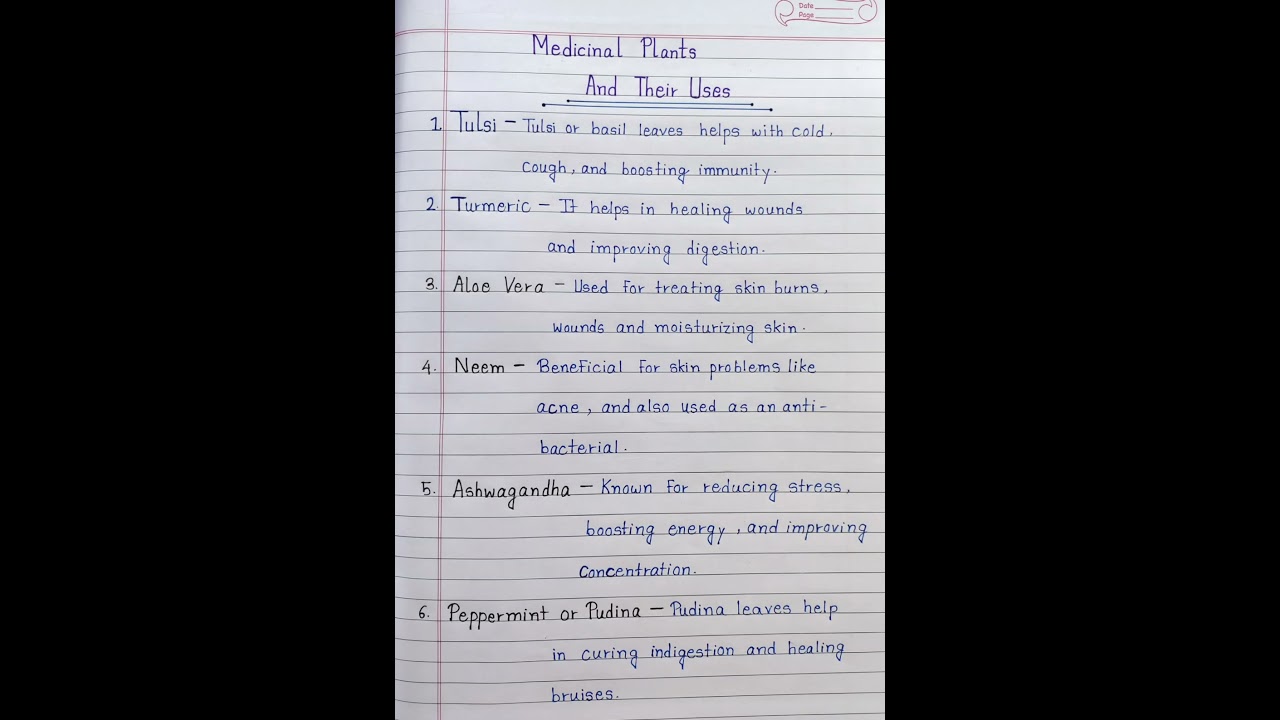 Date
Page
Medicinal Plants
And Their Uses
1. Tulsi – Tulsi or basil leaves helps with cold,
cough, and boosting immunity.
2. Turmeric – It helps in healing wounds
and improving digestion.
3. Aloe Vera – Used for treating skin burns,
wounds and moisturizing skin.
4. Neem – Beneficial for skin problems like
acne, and also used as an anti-
bacterial.
5. Ashwagandha – Known for reducing stress,
boosting energy, and improving
concentration.
6. Peppermint or Pudina – Pudina leaves help
in curing indigestion and healing
bruises.